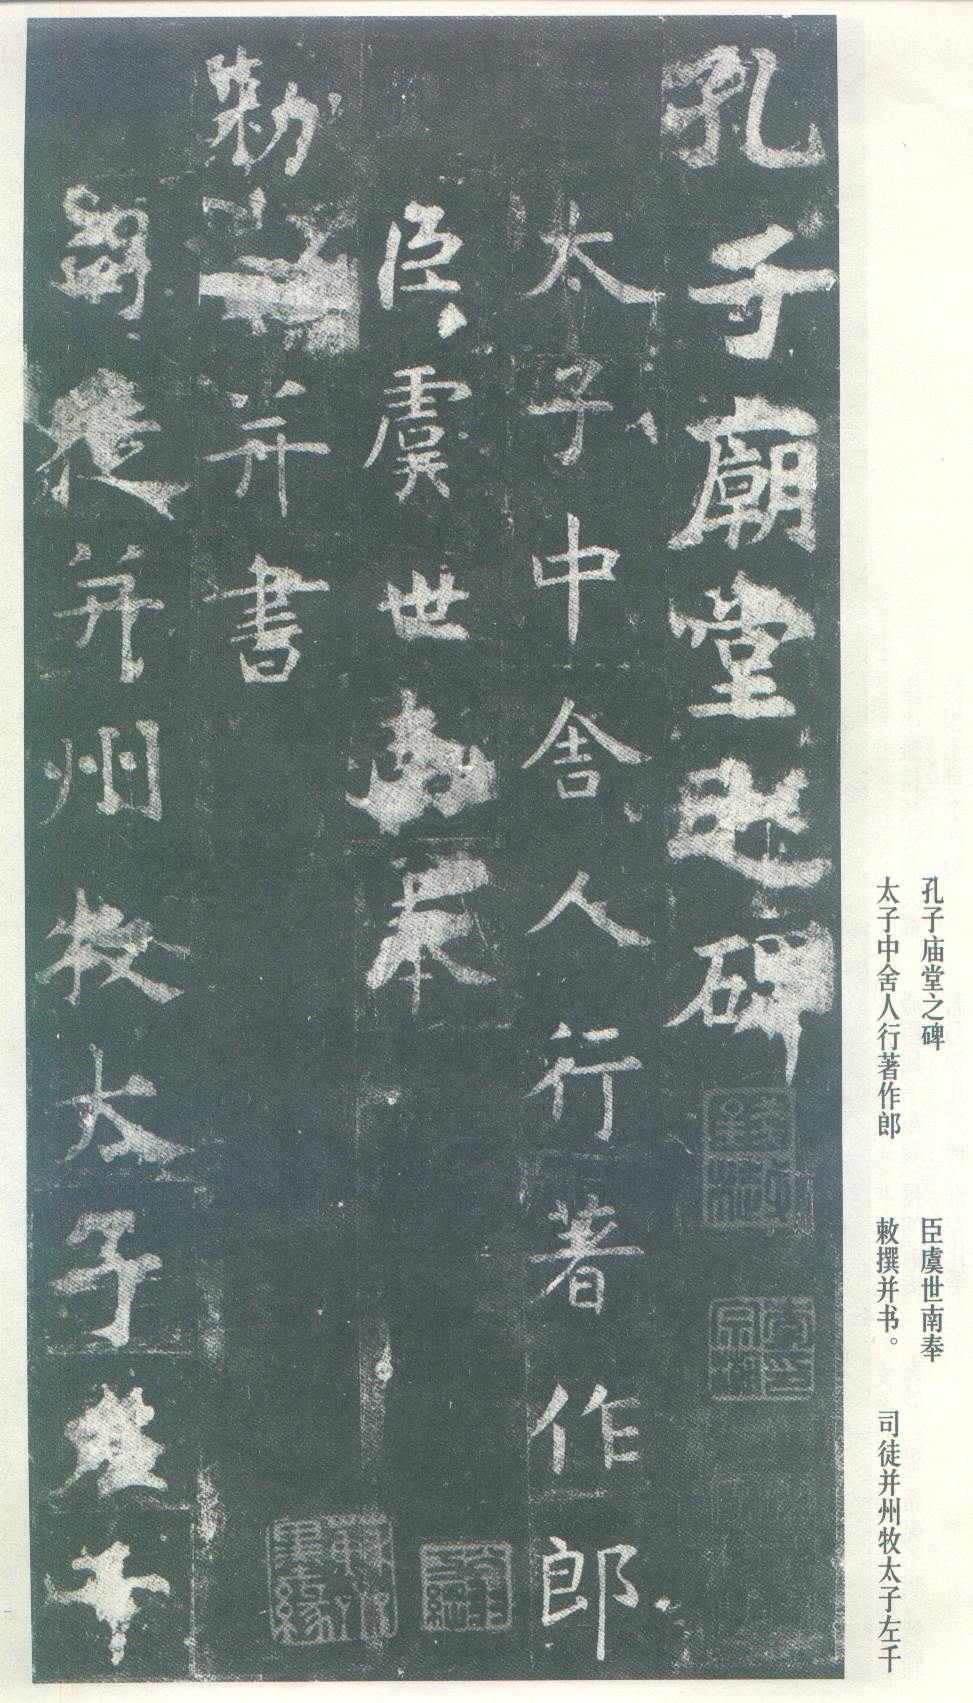 孔子廟堂之碑
太子中舍人行著作郎
臣虞世南奉
勅并書
司徒并州牧太子左千
孔子庙堂之碑
太子中舍人行著作郎
臣虞世南奉
敕撰并书。
司徒并州牧太子左千